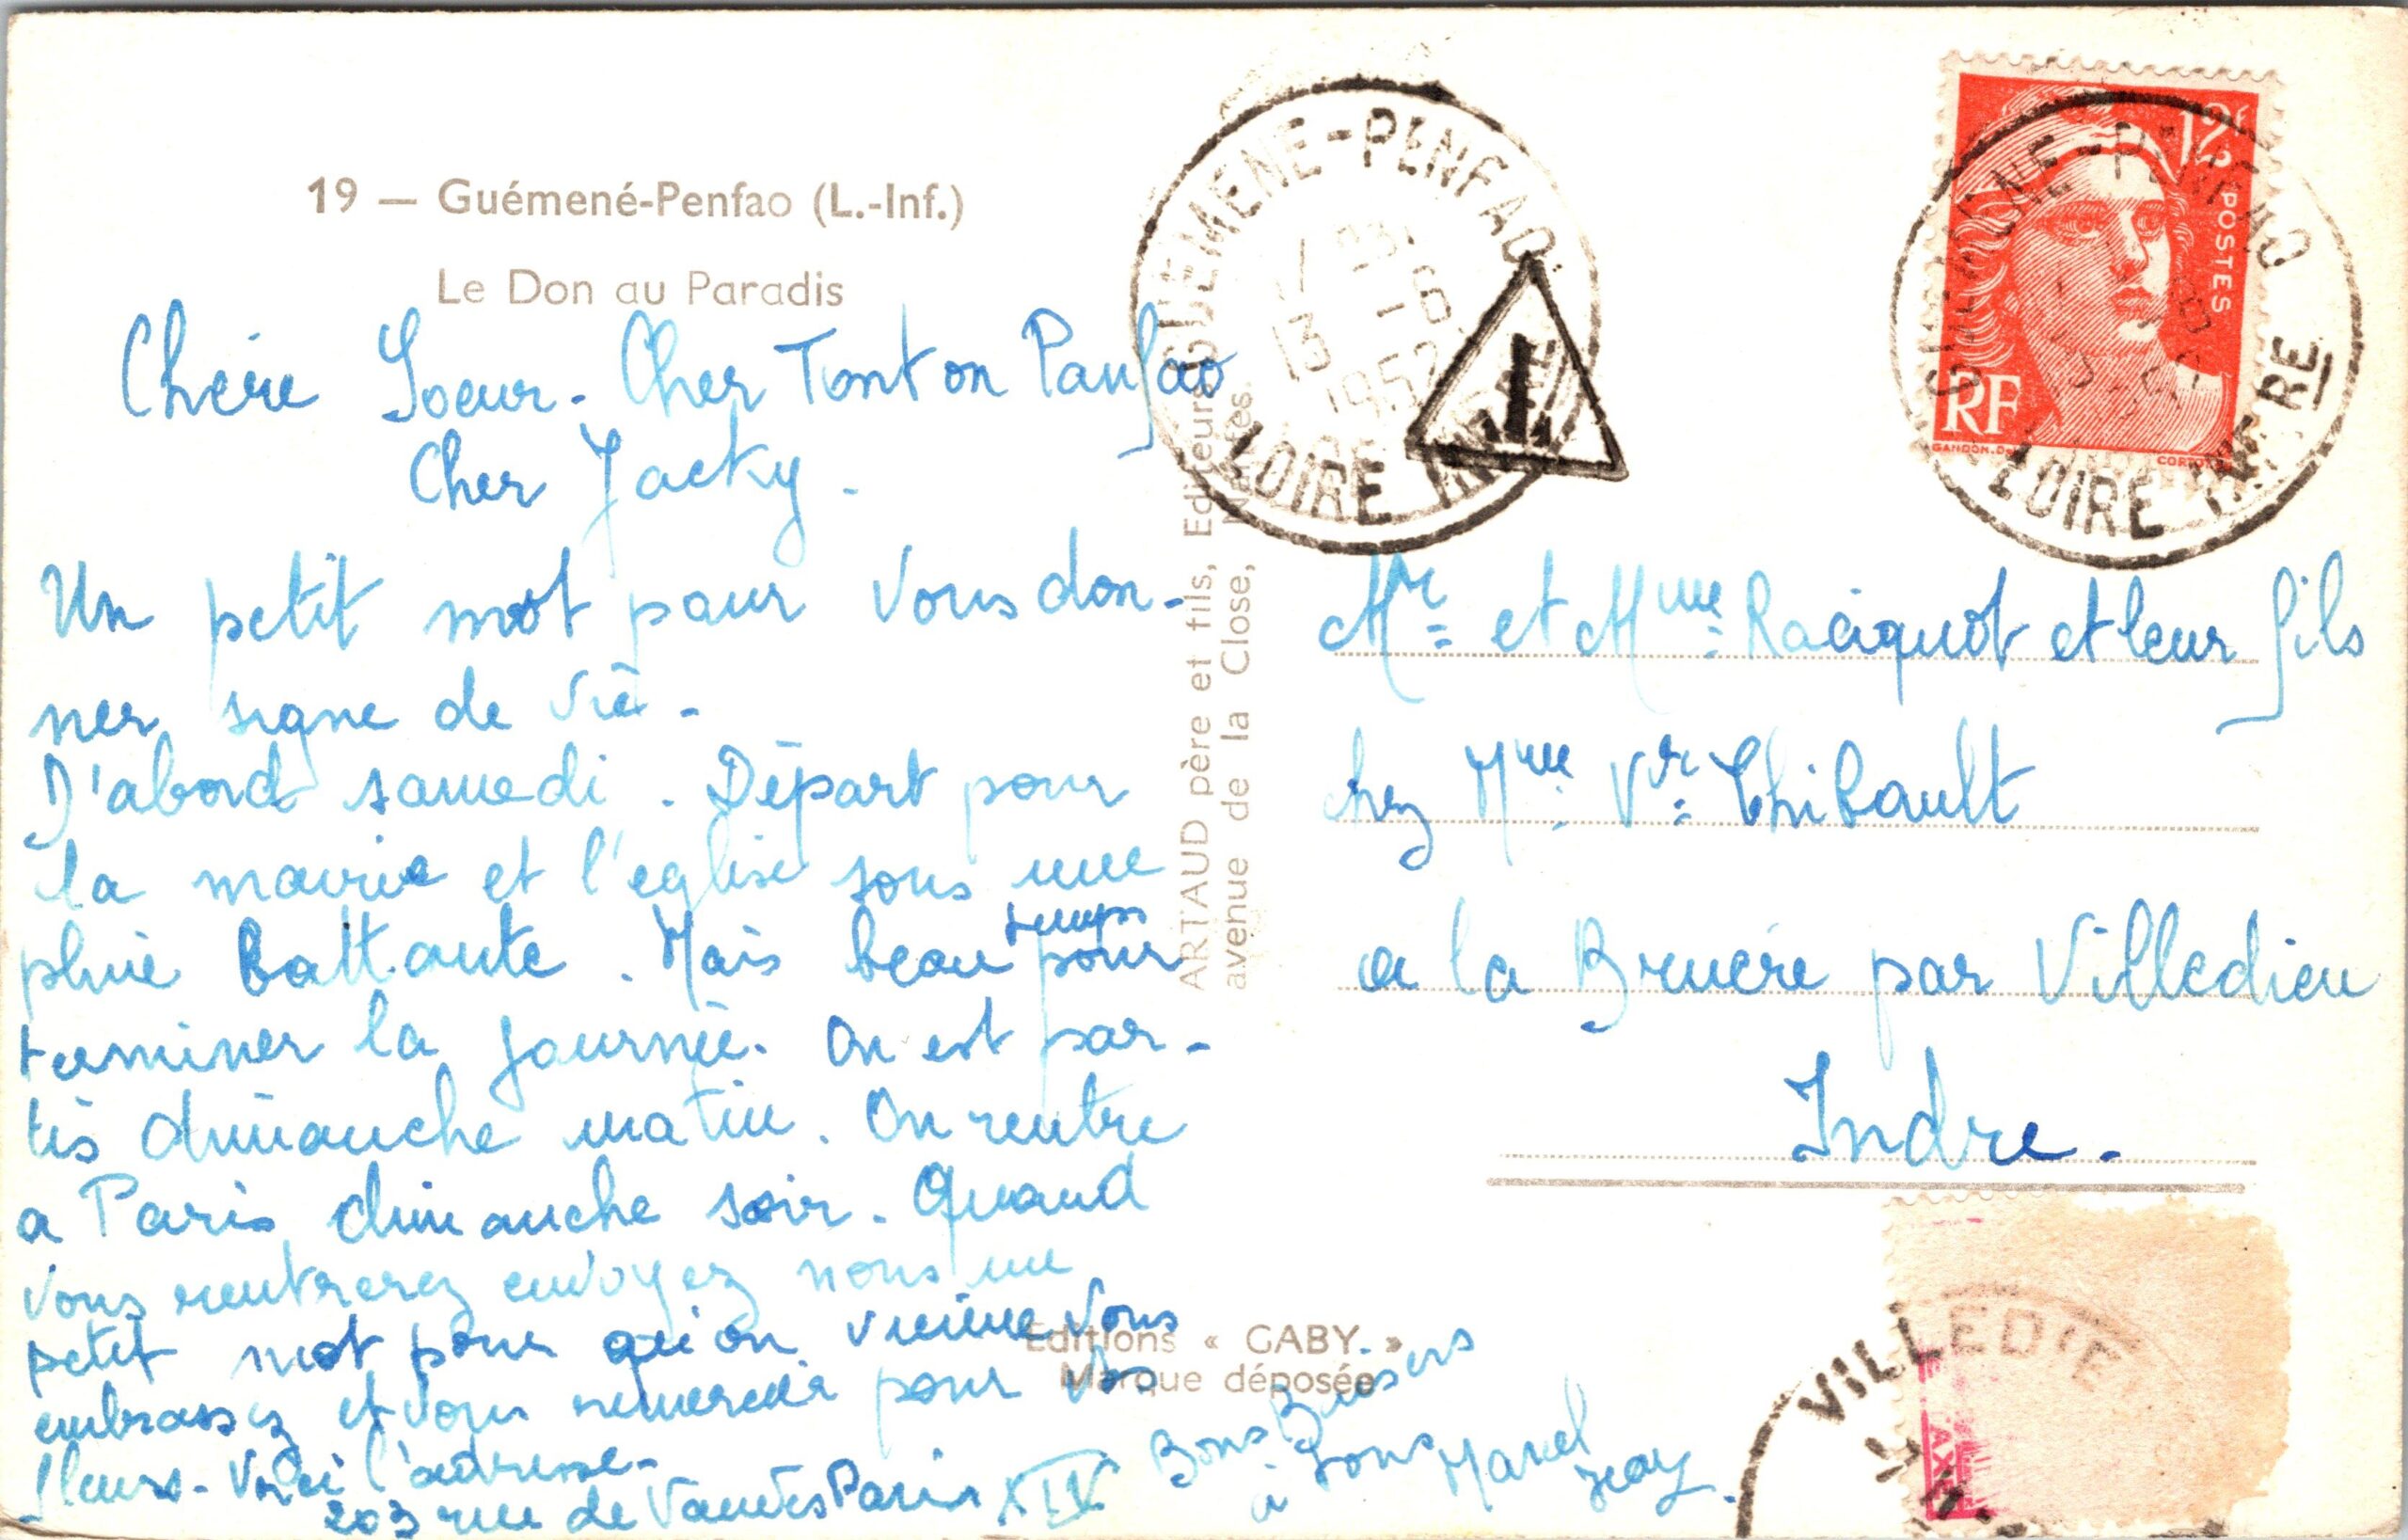 19 — Guémené-Penfao (L.-Inf.)
Le Don au Paradis
Chère Soeur. Cher Tonton Panfao
Cher Jacky.
Un petit mot pour vous don-
ner signe de vie -
D'abord samedi. Départ pour
la mairie et l'eglise sous une
pluie battante. Mais beau temps pour
terminer la journée. On est par-
tis dimanche matin. On rentre
a Paris dimanche soir. Quand
vous rentrerez envoyez nous un
petit mot pour qu'on vienne vous
embrassez et vous remercier pour vos
fleurs. Voici l'adresse.
203 rue de Vanves Paris XIV
Bons Baisers
à Tous Marcel
ARTAUD père et fils, Editeurs
avenue de la Close, Nantes.
Editions « GABY. »
Marque déposée
GUÉMENÉ-PENFAO
13 - 6
1952
LOIRE INFRE
12F
POSTES
RF
GANDON.
GUEMENE-PENFAO
LOIRE INFRE
Mr et Mme Raciquot et leur fils
chez Mme Vve Thibault
a la Bruère par Villedieu
Indre.
VILLEDIEU
TAXE